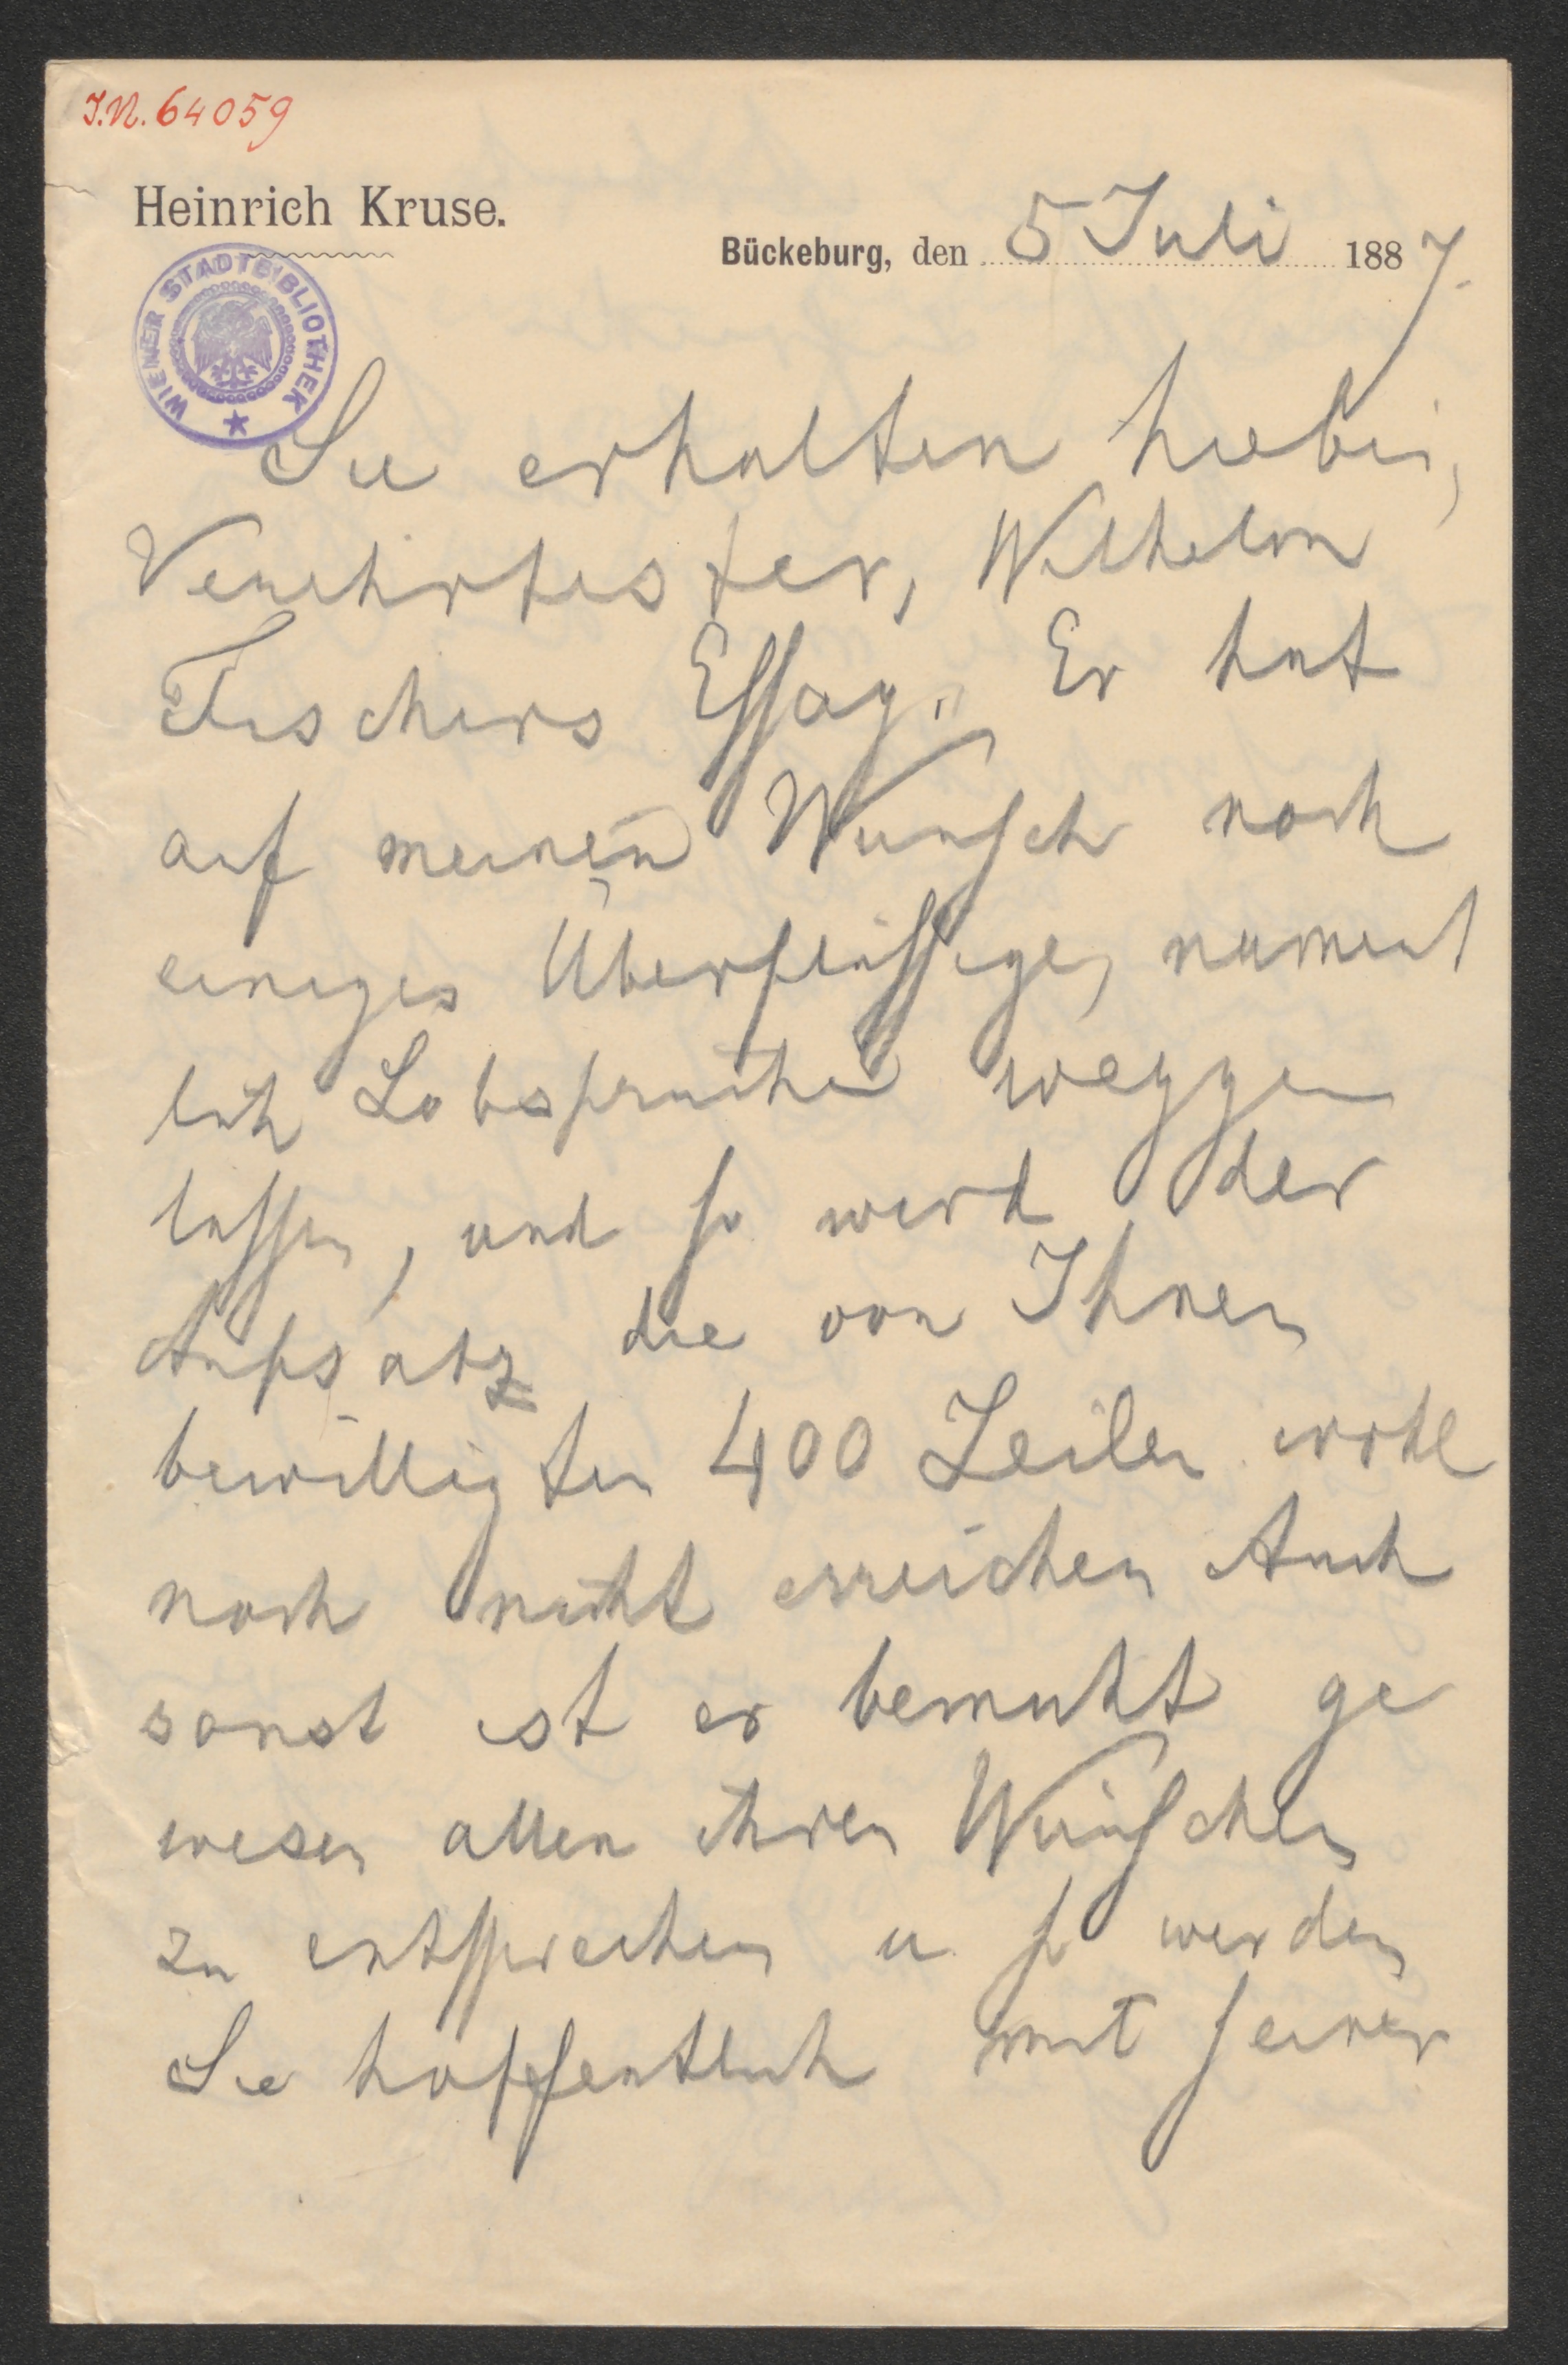 I.N. 64059
Heinrich Kruse.
Bückeburg, den 5 Juli 1887.
WIENER STADTBIBLIOTHEK
Sie erhalten hiebei,
Verehrtester, Wilhelm
Fischers Essay. Er hat
auf meinen Wunsch noch
einiges Überflüssige, nament
lich Lobsprüche wegge
lassen, und so wird der
Aufsatz die von Ihnen
bewilligten 400 Zeilen wohl
noch nicht erreichen Auch
sonst ist er bemüht ge
wesen allen ihren Wünschen
zu entsprechen u so werden
Sie hoffentlich mit seiner